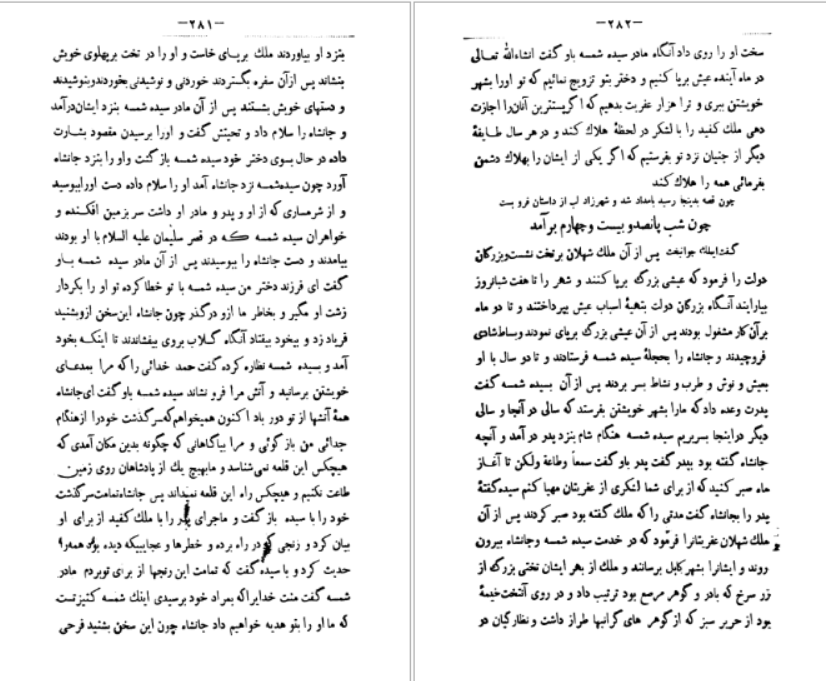 -۲۸۱-
بنزد او بیاوردند ملك برپای خاست و او را در تخت برپهلوی خویش
بنشاند پس ازآن سفره بگستردند خوردنی و نوشیدنی بخوردندوبنوشیدند
و دستهای خویش بشستند پس از آن مادر سیده شمسه بنزد ایشان‌درآمد
و جانشاه را سلام داد و تحیتش گفت و اورا برسیدن مقصود بشارت
داده در حال بسوی دختر خود سیده شمسه باز گشت واو را بنزد جانشاه
آورد چون سیده‌شمسه نزد جانشاه آمد او را سلام داده دست اورابوسید
و از شرمساری که از او و پدر و مادر او داشت سر بزمین افکنده و
خواهران سیده شمسه که در قصر سلیمان علیه السلام با او بودند
بیامدند و دست جانشاه را ببوسیدند پس از آن مادر سیده شمسه باو
گفت ای فرزند دختر من سیده شمسه با تو خطا کرده تو او را بکردار
زشت او مگیر و بخاطر ما ازو درگذر چون جانشاه این‌سخن ازوبشنید
فریاد زد و بیخود بیفتاد آنگاه گلاب بروی بیفشاندند تا اینکه بخود
آمد و بسیده شمسه نظاره کرده گفت حمد خدائی راکه مرا بمدعای
خویشتن برسانید و آتش مرا فرو نشاند سیده شمسه باو گفت ای‌جانشاه
همهٔ آتشها از تو دور باد اکنون همیخواهم‌که‌سرگذشت خودرا ازهنگام
جدائی من باز گوئی و مرا بیاگاهانی که چگونه بدین مکان آمدی که
هیچکس این قلعه نمی‌شناسد و مابهیچ یك از پادشاهان روی زمین
طاعت نکنیم و هیچکس راه این قلعه نمیداند پس جانشاه‌تمامت‌سرگذشت
خود را با سیده باز گفت و ماجرای پدر را با ملك کفید از برای او
بیان کرد و رنجی که در راه برده و خطرها و عجایبیکه دیده بود همه‌را
حدیث کرد و با سیده گفت که تمامت این رنجها از برای توبردم مادر
شمسه گفت منت خدایراکه بمراد خود برسیدی اینك شمسه کنیزتست
که ما او را بتو هدیه خواهیم داد جانشاه چون این سخن بشنید فرحی
-۲۸۲-
سخت او را روی داد آنگاه مادر سیده شمسه باو گفت انشاءالله تعالی
در ماه آینده عیش برپا کنیم و دختر بتو تزویج نمائیم که تو اورا بشهر
خویشتن ببری و ترا هزار عفریت بدهیم که اگرپستترین آنان‌را اجازت
دهی ملك کفید را با لشکر در لحظهٔ هلاك کند و در هر سال طایفهٔ
دیگر از جنیان نزد تو بفرستیم که اگر یکی از ایشان را بهلاك دشمن
بفرمائی همه را هلاك کند
چون قصه بدینجا رسید بامداد شد و شهرزاد لب از داستان فرو بست
چون شب پانصدو بیست و چهارم برآمد
گفت‌ایملك جوانبخت پس از آن ملك شهلان برتخت نشست‌وبزرگان
دولت را فرمود که عیشی بزرگ برپا کنند و شهر را تا هفت شبانروز
بیارایند آنگاه بزرگان دولت بتهیهٔ اسباب عیش بپرداختند و تا دو ماه
برآن‌کار مشغول بودند پس از آن عیشی بزرگ برپای نمودند وبساط‌شادی
فروچیدند و جانشاه را بحجلهٔ سیده شمسه فرستادند و تا دو سال با او
بعیش و نوش و طرب و نشاط بسر بردند پس از آن بسیده شمسه گفت
پدرت وعده دادکه مارا بشهر خویشتن بفرستد که سالی در آنجا و سالی
دیگر دراینجا بسربریم سیده شمسه هنگام شام بنزد پدر در آمد و آنچه
جانشاه گفته بود بپدر گفت پدر باو گفت سمعاً وطاعة ولکن تا آغاز
ماه صبر کنید که از برای شما لشکری از عفریتان مهیا کنم سیده‌گفتهٔ
پدر را بجانشاه گفت مدتی را که ملك گفته بود صبر کردند پس از آن
ملك شهلان عفریتانرا فرمود که در خدمت سیده شمسه وجانشاه بیرون
روند و ایشانرا بشهرکابل برسانند و ملك از بهر ایشان تختی بزرگ از
زر سرخ که بادر و گوهر مرصع بود ترتیب داد و در روی آنتخت‌خیمهٔ
بود از حریر سبز که ازگوهر های گرانبها طراز داشت و نظارگیان در